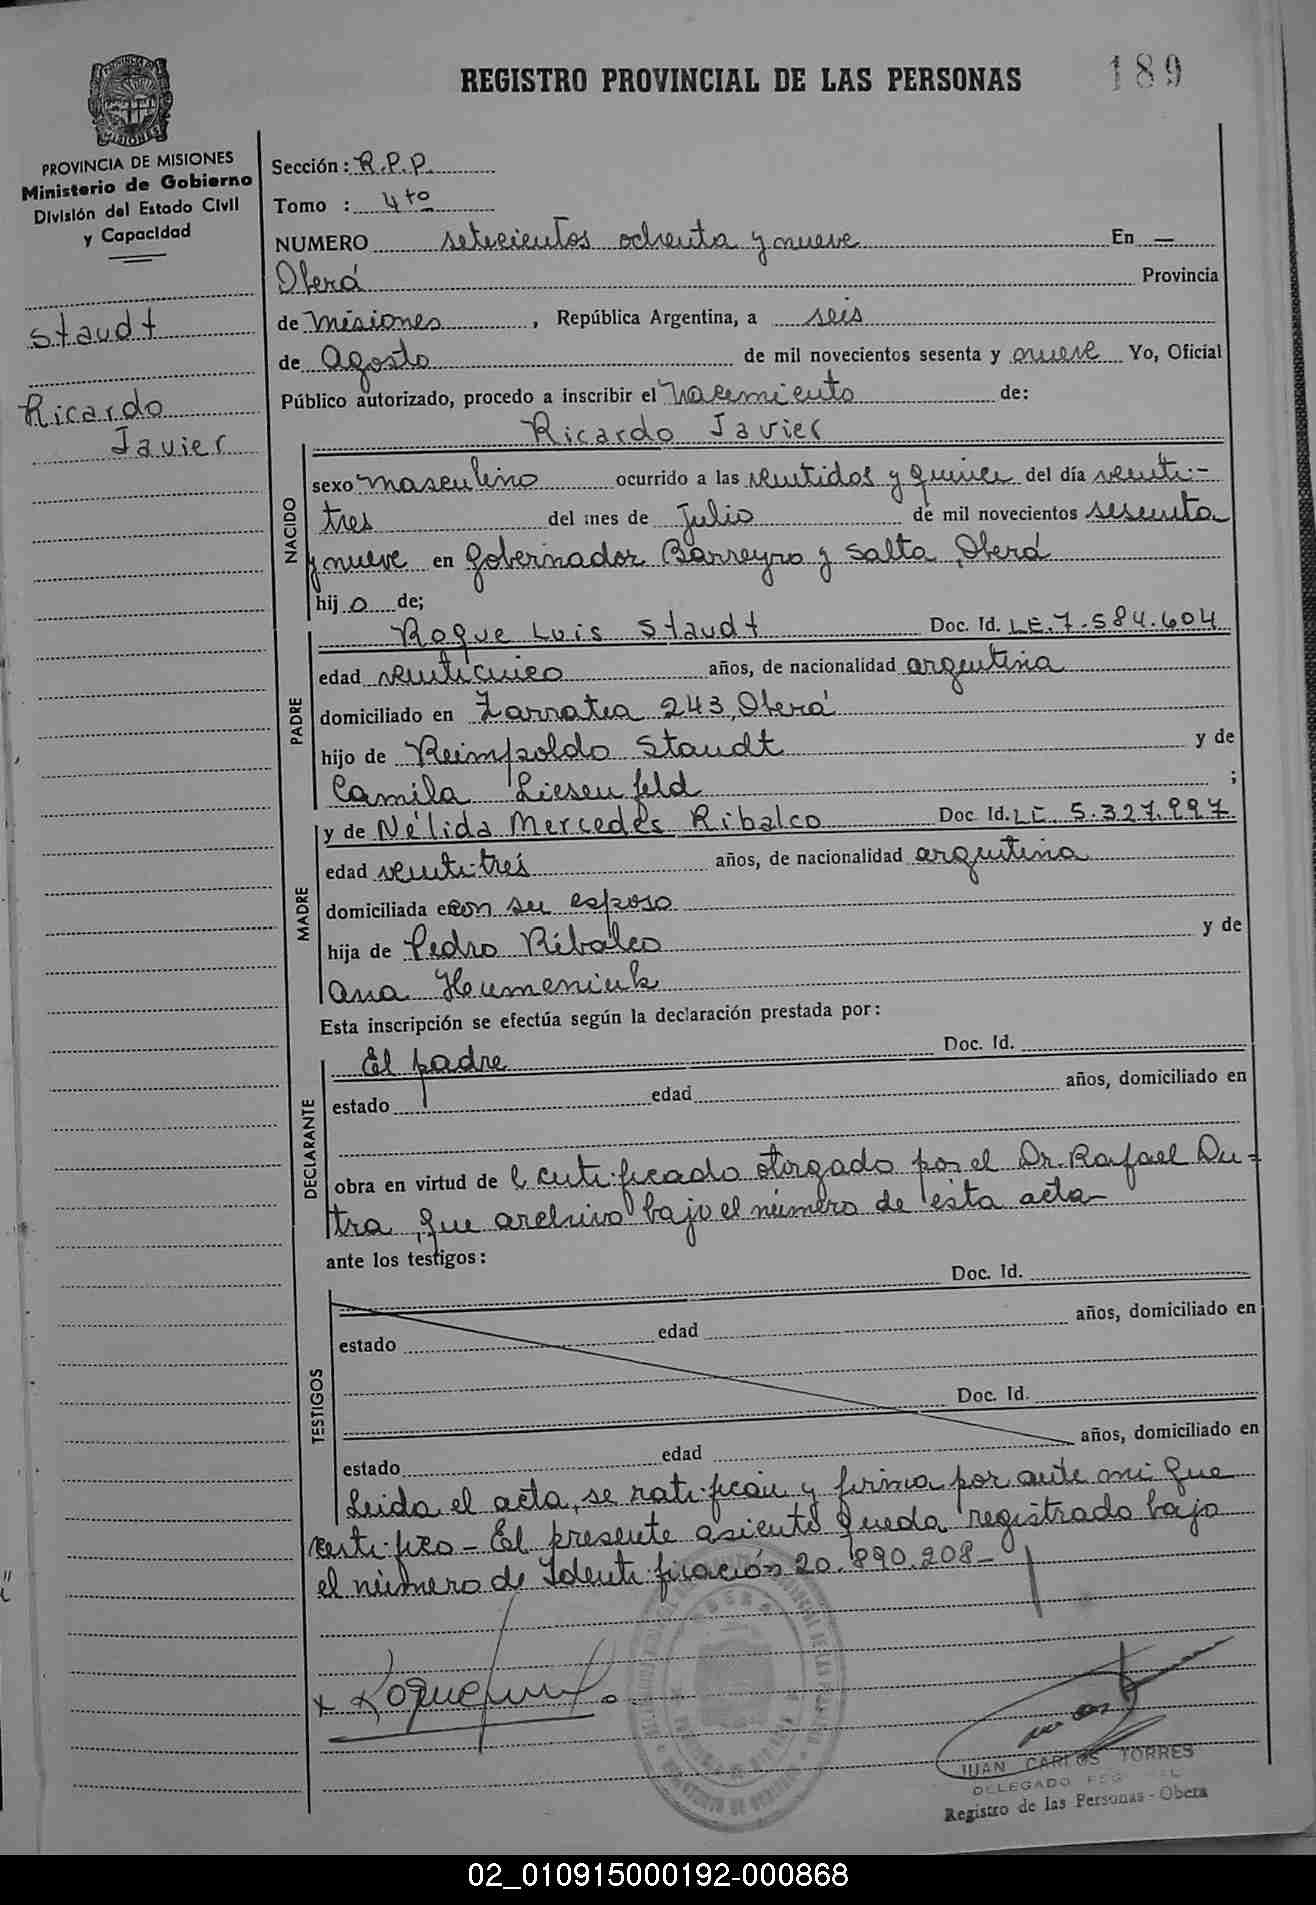 REGISTRO PROVINCIAL DE LAS PERSONAS
189
PROVINCIA DE MISIONES
Ministerio de Gobierno
División del Estado Civil
y Capacidad
Staudt
Ricardo
Javier
Sección: R.P.P.
Tomo : 4to
NUMERO setecientos ochenta y nueve En —
Oberá Provincia
de Misiones, República Argentina, a seis
de Agosto de mil novecientos sesenta y nueve Yo, Oficial
Público autorizado, procedo a inscribir el Nacimiento de:
NACIDO
Ricardo Javier
sexo masculino ocurrido a las veintidos y quince del día veinti-
tres del mes de Julio de mil novecientos sesenta
y nueve en Gobernador Barreyro y Salta, Oberá
hijo de;
PADRE
Roque Luis Staudt Doc. Id. LE.7.584.604
edad veinticinco años, de nacionalidad argentina
domiciliado en Zarratea 243, Oberá
hijo de Reimpoldo Staudt y de
Camila Liesenfeld ;
MADRE
y de Nélida Mercedes Ribalco Doc Id. LC. 5.327.997
edad veinti-trés años, de nacionalidad argentina
domiciliada con su esposo
hija de Pedro Ribalco y de
Ana Heumeniuk
Esta inscripción se efectúa según la declaración prestada por:
DECLARANTE
El padre Doc. Id.
estado edad años, domiciliado en
obra en virtud de l certificado otorgado por el Dr. Rafael Du-
tra, que archivo bajo el número de esta acta-
ante los testigos:
TESTIGOS
Doc. Id.
estado edad años, domiciliado en
Doc. Id.
estado edad años, domiciliado en
Leida el acta, se ratifican y firma por ante mi que
certifico - El presente asiento queda registrado bajo
el número de Identificación 20.890.208-
JUAN CARLOS TORRES
DELEGADO
Registro de las Personas - Obera
02_010915000192-000868